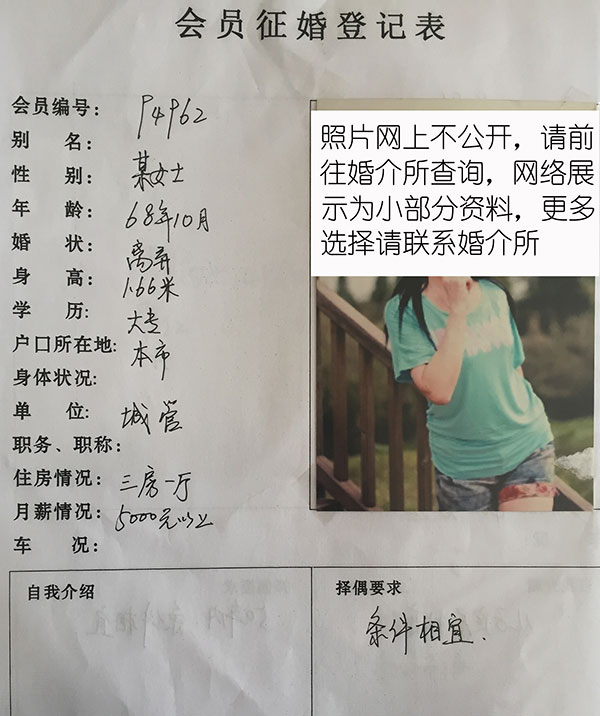 会员征婚登记表
会员编号: P4962
别 名:
性 别: 某女士
年 龄: 68年10月
婚 状: 离异
身 高: 1.66米
学 历: 大专
户口所在地: 本市
身体状况:
单 位: 城管
职务、职称:
住房情况: 三房一厅
月薪情况: 5000元以上
车 况:
照片网上不公开，请前
往婚介所查询，网络展
示为小部分资料，更多
选择请联系婚介所
自我介绍
择偶要求
条件相宜.